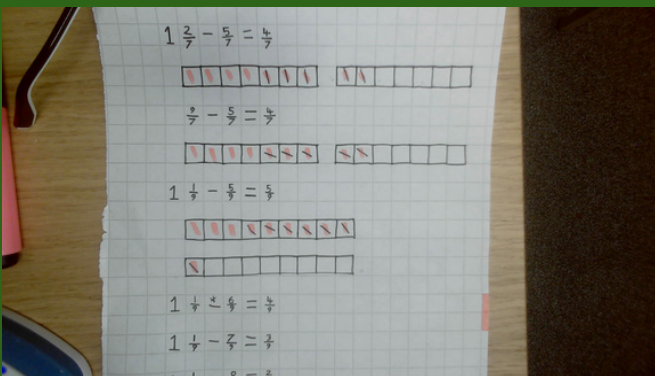 1 2/7 - 5/7 = 4/7
9/7 - 5/7 = 4/7
1 1/9 - 5/9 = 5/9
1 1/9 - 6/9 = 4/9
1 1/9 - 7/9 = 3/9